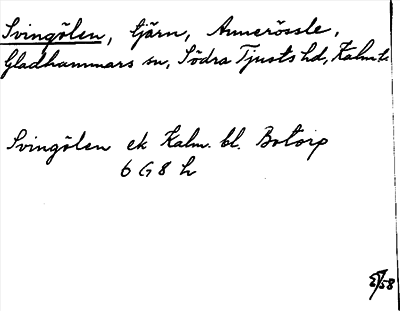 Svingölen, tjärn, Annerössle,
Gladhammars sn, Södra Tjusts hd, Kalm. l.
Svingölen ek Kalm. bl. Botorp
6 G 8 h
58